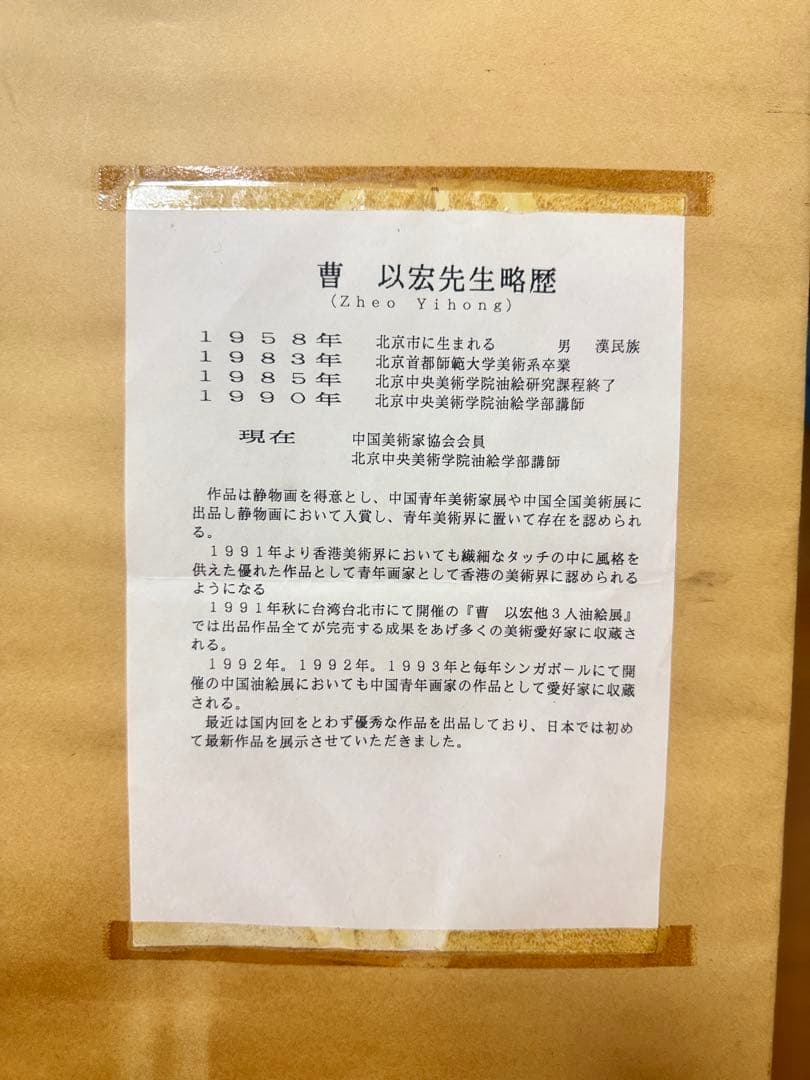 曹　以宏先生略歴
(Ｚｈｅｏ　Ｙｉｈｏｎｇ)
１９５８年　北京市に生まれる　　　男　漢民族
１９８３年　北京首都師範大学美術系卒業
１９８５年　北京中央美術学院油絵研究課程終了
１９９０年　北京中央美術学院油絵学部講師
現在　中国美術家協会会員
北京中央美術学院油絵学部講師
作品は静物画を得意とし、中国青年美術家展や中国全国美術展に
出品し静物画において入賞し、青年美術界に置いて存在を認められ
る。
１９９１年より香港美術界においても繊細なタッチの中に風格を
供えた優れた作品として青年画家として香港の美術界に認められる
ようになる
１９９１年秋に台湾台北市にて開催の『曹　以宏他３人油絵展』
では出品作品全てが完売する成果をあげ多くの美術愛好家に収蔵さ
れる。
１９９２年。１９９２年。１９９３年と毎年シンガポールにて開
催の中国油絵展においても中国青年画家の作品として愛好家に収蔵
される。
最近は国内回をとわず優秀な作品を出品しており、日本では初め
て最新作品を展示させていただきました。